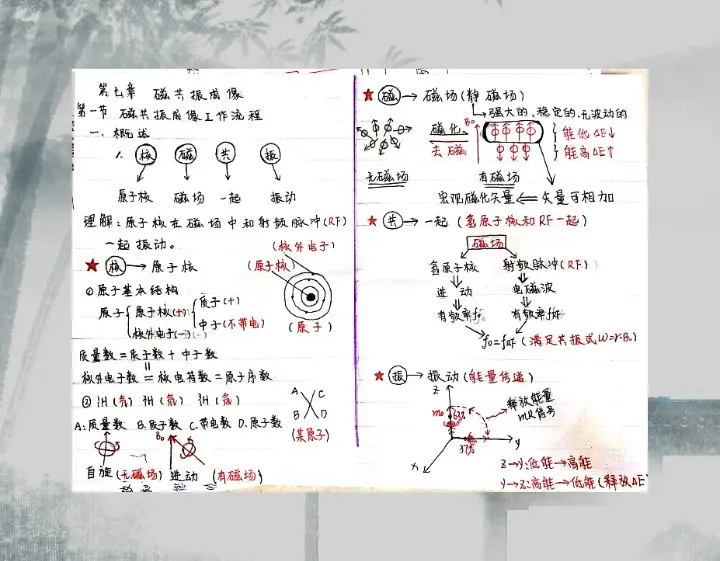 第七章 磁共振成像
第一节 磁共振成像工作流程
一、概述
1. 核 磁 共 振
原子核 磁场 一起 振动
理解：原子核在磁场中和射频脉冲(RF)
一起振动。
(核外电子)
★ 核→原子核
(原子核)
①原子基本结构
原子 原子核(+) 质子(+)
中子(不带电)
核外电子(-)
(原子)
质量数=质子数+中子数
核外电子数=核电荷数=原子序数
② ¹₁H(氕) ²₁H(氘) ³₁H(氚)
A C
B D
(某原子)
A:质量数 B.质子数 C.带电数 D.原子数
B₀
自旋(无磁场) 进动 (有磁场)
★ 磁→磁场(静磁场)
强大的、稳定的、无波动的
磁化
去磁
B₀
能低ΔE↓
能高ΔE↑
无磁场 有磁场
宏观磁化矢量⇐矢量可相加
★ 共→一起(氢原子核和RF一起)
磁场
氢原子核 射频脉冲(RF)
进动 电磁波
有频率f₀ 有频率fRF
f₀=fRF(满足共振式ω=γ·B₀)
★ 振→振动(能量传递)
Z
m₀
释放能量
MR信号
X
y
Z→y:低能→高能
y→Z:高能→低能(释放ΔE)